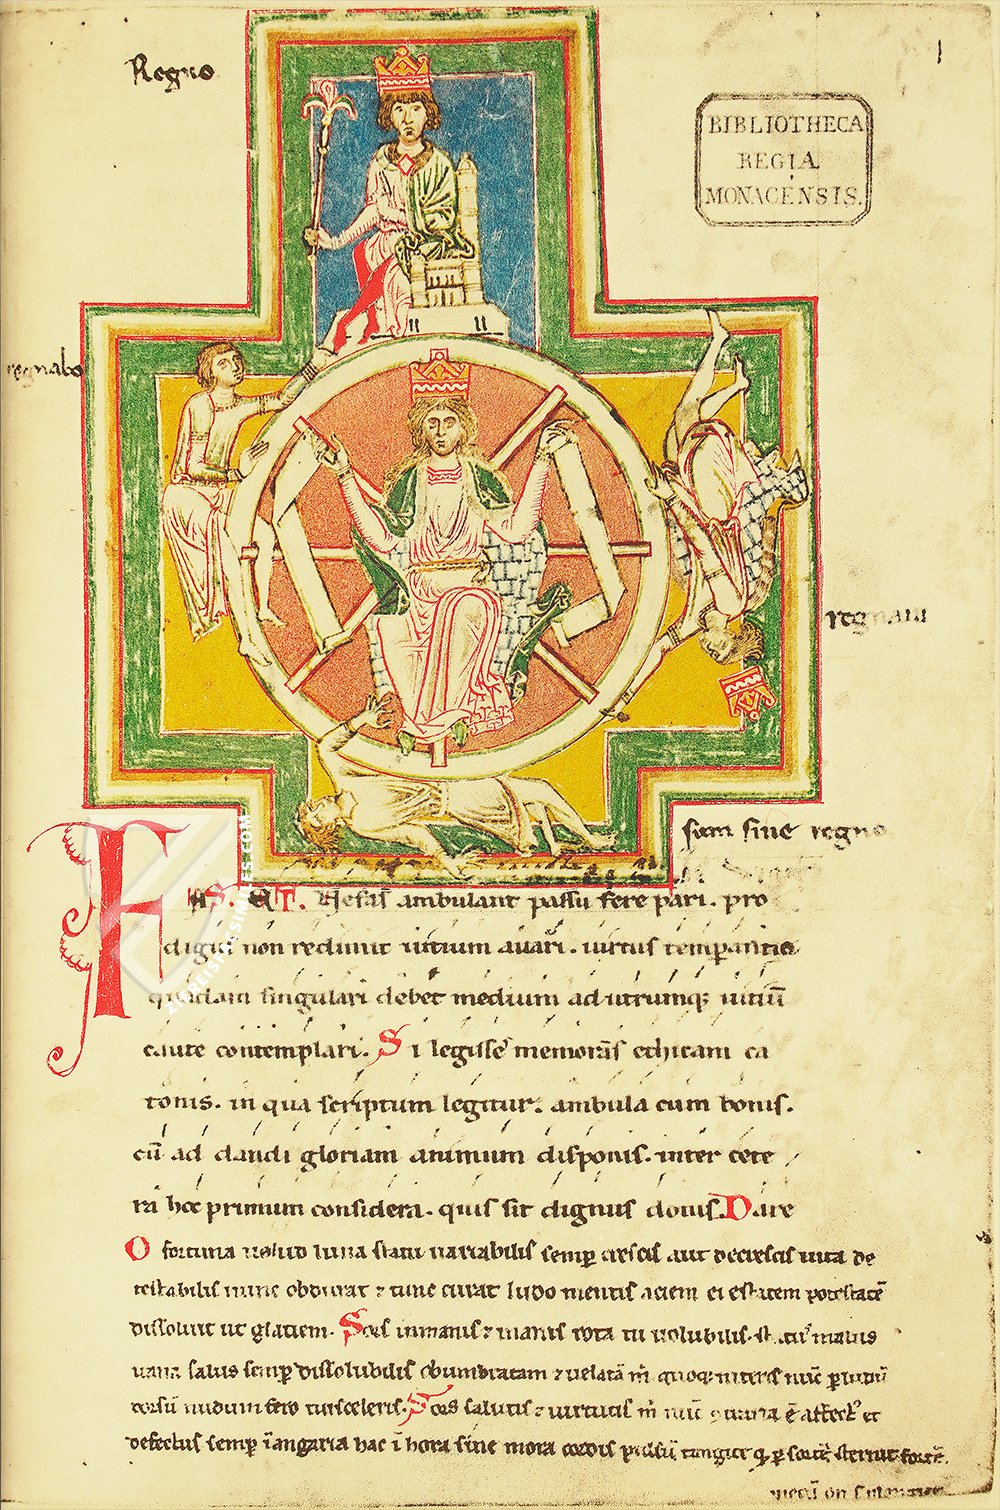 Regno
BIBLIOTHECA
REGIA
MONACENSIS.
regnabo
regnaui
sum sine regno
FAS. ET. Nefas ambulant passu fere pari. pro
digus non redimit uitium auari. uirtus temperantia
quadam singulari debet medium ad utrumq; uitiū
caute contemplari. Si legisse memoras ethicam ca
tonis. in qua scriptum legitur. ambula cum bonis.
cū ad dandi gloriam animum disponis. inter cete
ra hoc primum considera. quis sit dignus donis. Dare
O fortuna uelud luna statu uariabilis semp crescis aut decrescis uita de
testabilis nunc obdurat ⁊ tunc curat ludo mentis aciem egestatem potestatē
dissoluit ut glatiem. Sors inmanis ⁊ inanis rota tu uolubilis. statꝰ malus
uana salus semp dissolubilis obumbratam ⁊ uelatā m quoq; niteris nūc p ludū
dorsū nudum fero tui sceleris. Sors salutis ⁊ uirtutis m nūc ꝯtraria ē affectꝰ et
defectus semp ī angaria hac ī hora sine mora cordis pulsū tangite